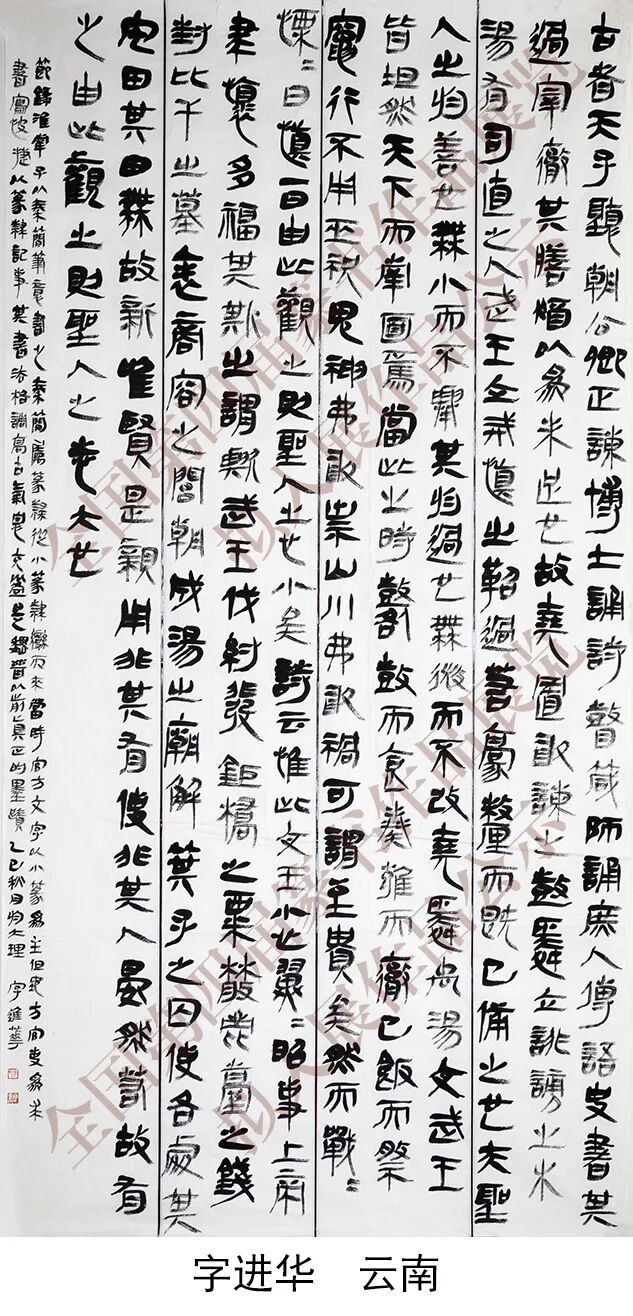 古者天子聽朝公卿正諫博士誦詩瞽箴師誦庶人傳語史書其
過宰徹其膳猶以為未足也故堯置敢諫之鼓舜立誹謗之木
湯有司直之人武王立戒慎之鞀過若豪釐而既已備之也夫聖
人之於善也無小而不舉其於過也無微而不改堯舜禹湯文武王
皆坦然天下而南面焉當此之時鼛鼓而食奏雍而徹已飯而祭
竈行不用巫祝鬼神弗敢祟山川弗敢禍可謂至貴矣然而戰=
慄=日慎一日由此觀之則聖人之心小矣詩云惟此文王小心翼=昭事上帝
聿懷多福其斯之謂歟武王伐紂發鉅橋之粟散鹿臺之錢
封比干之墓表商容之閭朝成湯之廟解箕子之囚使各處其
宅田其田無故新惟賢是親用非其有使非其人晏然若故有
之由此觀之則聖人之志大也
節錄淮南子以秦簡筆意書之秦簡屬篆隸從小篆隸變而來當時官方文字以小篆為主但民方間史為求
書寫便捷以篆隸記事其書法格調高古氣息文是魏晉以前真正的墨蹟乙巳秋月於大理 字進華
全国第四届篆书作品展览
拟入展作品公示
字进华 云南